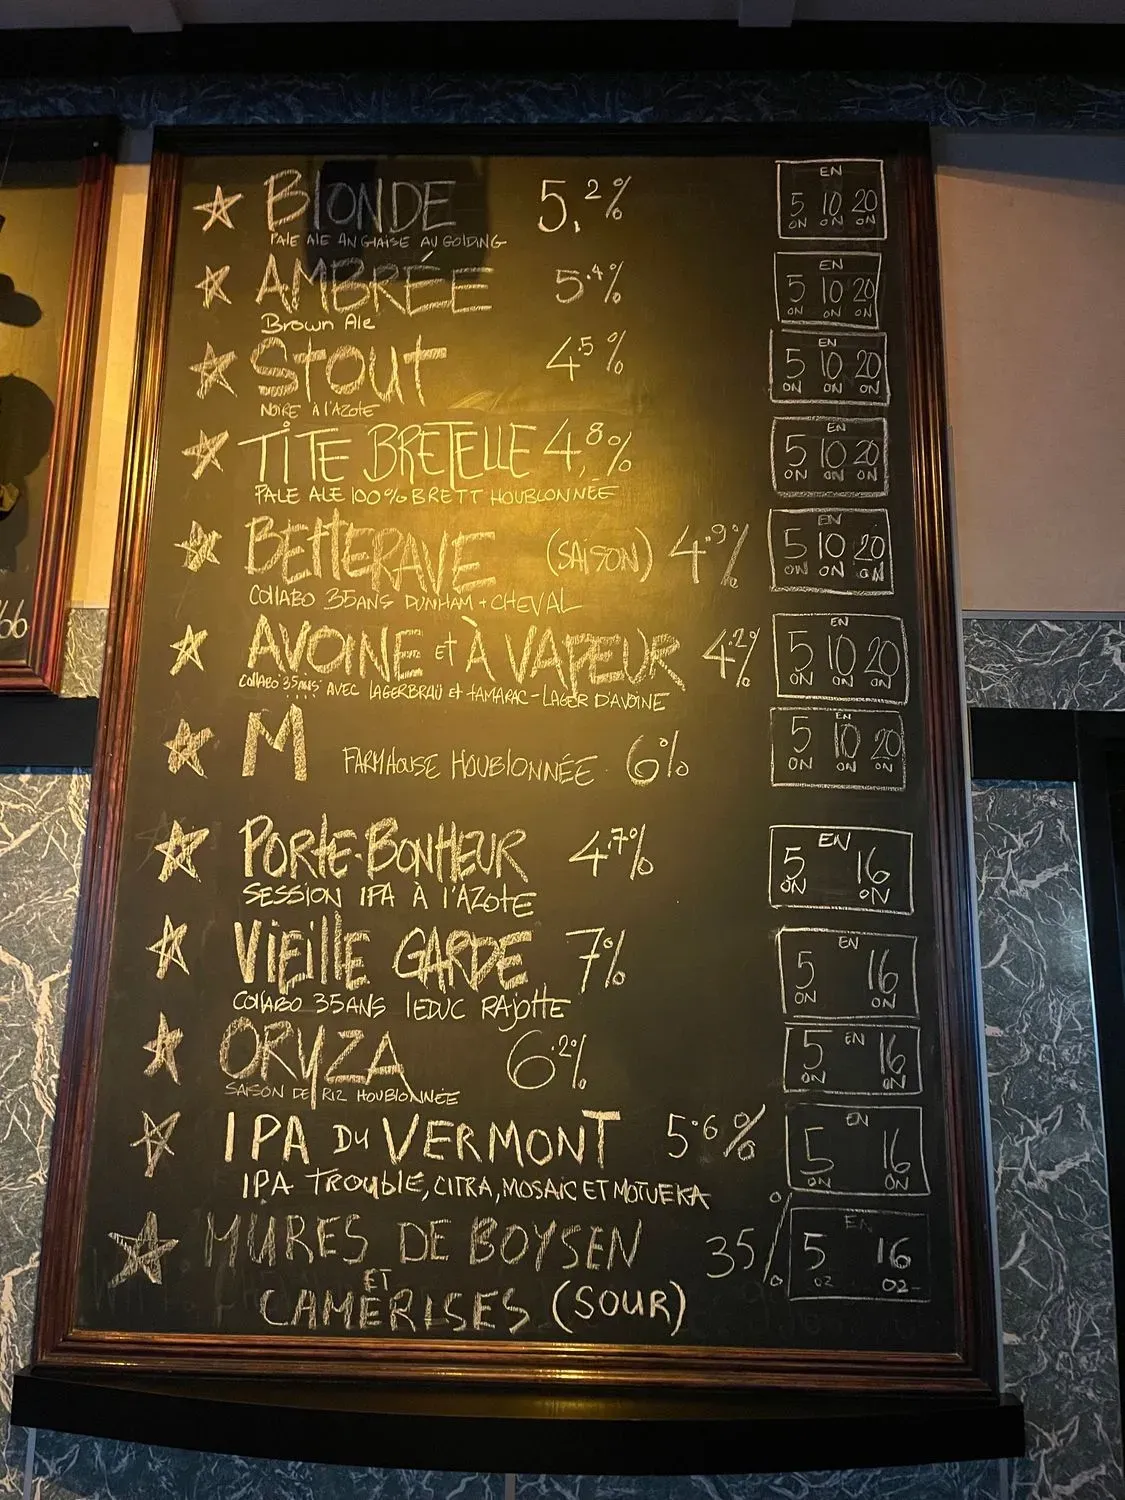 BLONDE 5.2% EN
PALE ALE ANGLAISE AU GOLDING 5 ON 10 ON 20 ON
AMBRÉE 5.4% EN
Brown Ale 5 ON 10 ON 20 ON
STOUT 4.5% EN
NOIRE À L'AZOTE 5 ON 10 ON 20 ON
TITE BRETELLE 4,8% EN
PALE ALE 100% BRETT HOUBLONNÉE 5 ON 10 ON 20 ON
BETTERAVE (SAISON) 4.9% EN
COLLABO 35ANS DUNHAM + CHEVAL 5 ON 10 ON 20 ON
AVOINE et À VAPEUR 4.2% EN
COLLABO 35ANS AVEC LAGERBRAÜ et TAMARAC - LAGER D'AVOINE 5 ON 10 ON 20 ON
M FARMHOUSE HOUBLONNÉE 6% EN
5 ON 10 ON 20 ON
PORTE-BONHEUR 4.7% EN
SESSION IPA À L'AZOTE 5 ON 16 ON
VIEILLE GARDE 7% EN
COLLABO 35ANS LEDUC RAJOTTE 5 ON 16 ON
ORYZA 6.2% EN
SAISON DE RIZ HOUBLONNÉE 5 ON 16 ON
IPA DU VERMONT 5.6% EN
IPA TROUBLE, CITRA, MOSAIC ET MOTUEKA 5 ON 16 ON
MURES DE BOYSEN 35% EN
ET 5 OZ 16 OZ
CAMERISES (SOUR)